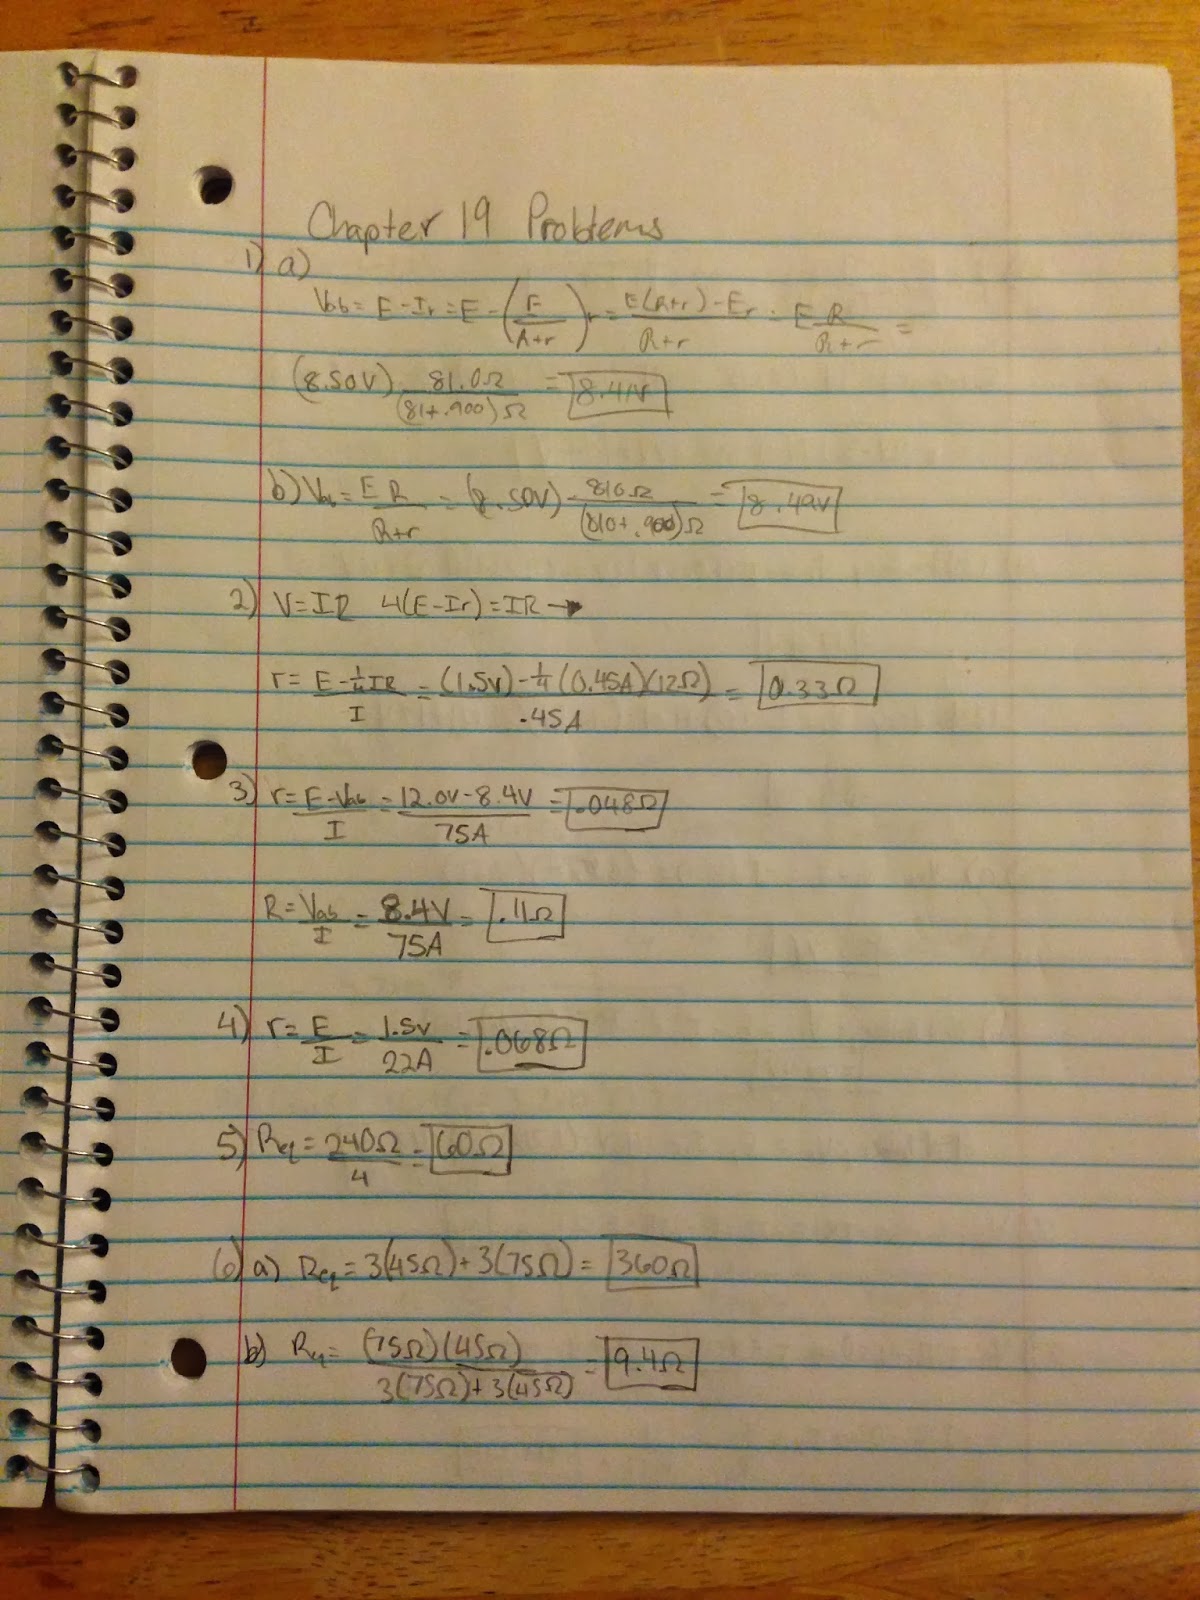 Chapter 19 Problems
1) a)
Vab = E - Ir = E - (E/R+r)r = E(R+r) - Er/R+r = E R/R+r =
(8.50V) 81.0Ω/(81+.900)Ω = 8.41V
b) Vab = E R/R+r = (8.50V) 810Ω/(810+.900)Ω = 8.49V
2) V=IR 4(E-Ir)=IR →
r = E - 1/4 IR/I = (1.5V) - 1/4 (0.45A)(12Ω)/.45A = 0.33Ω
3) r = E - Vab/I = 12.0V - 8.4V/75A = .048Ω
R = Vab/I = 8.4V/75A = .11Ω
4) r = E/I = 1.5V/22A = .068Ω
5) Req = 240Ω/4 = 60Ω
6) a) Req = 3(45Ω) + 3(75Ω) = 360Ω
b) Req = (75Ω)(45Ω)/3(75Ω) + 3(45Ω) = 9.4Ω